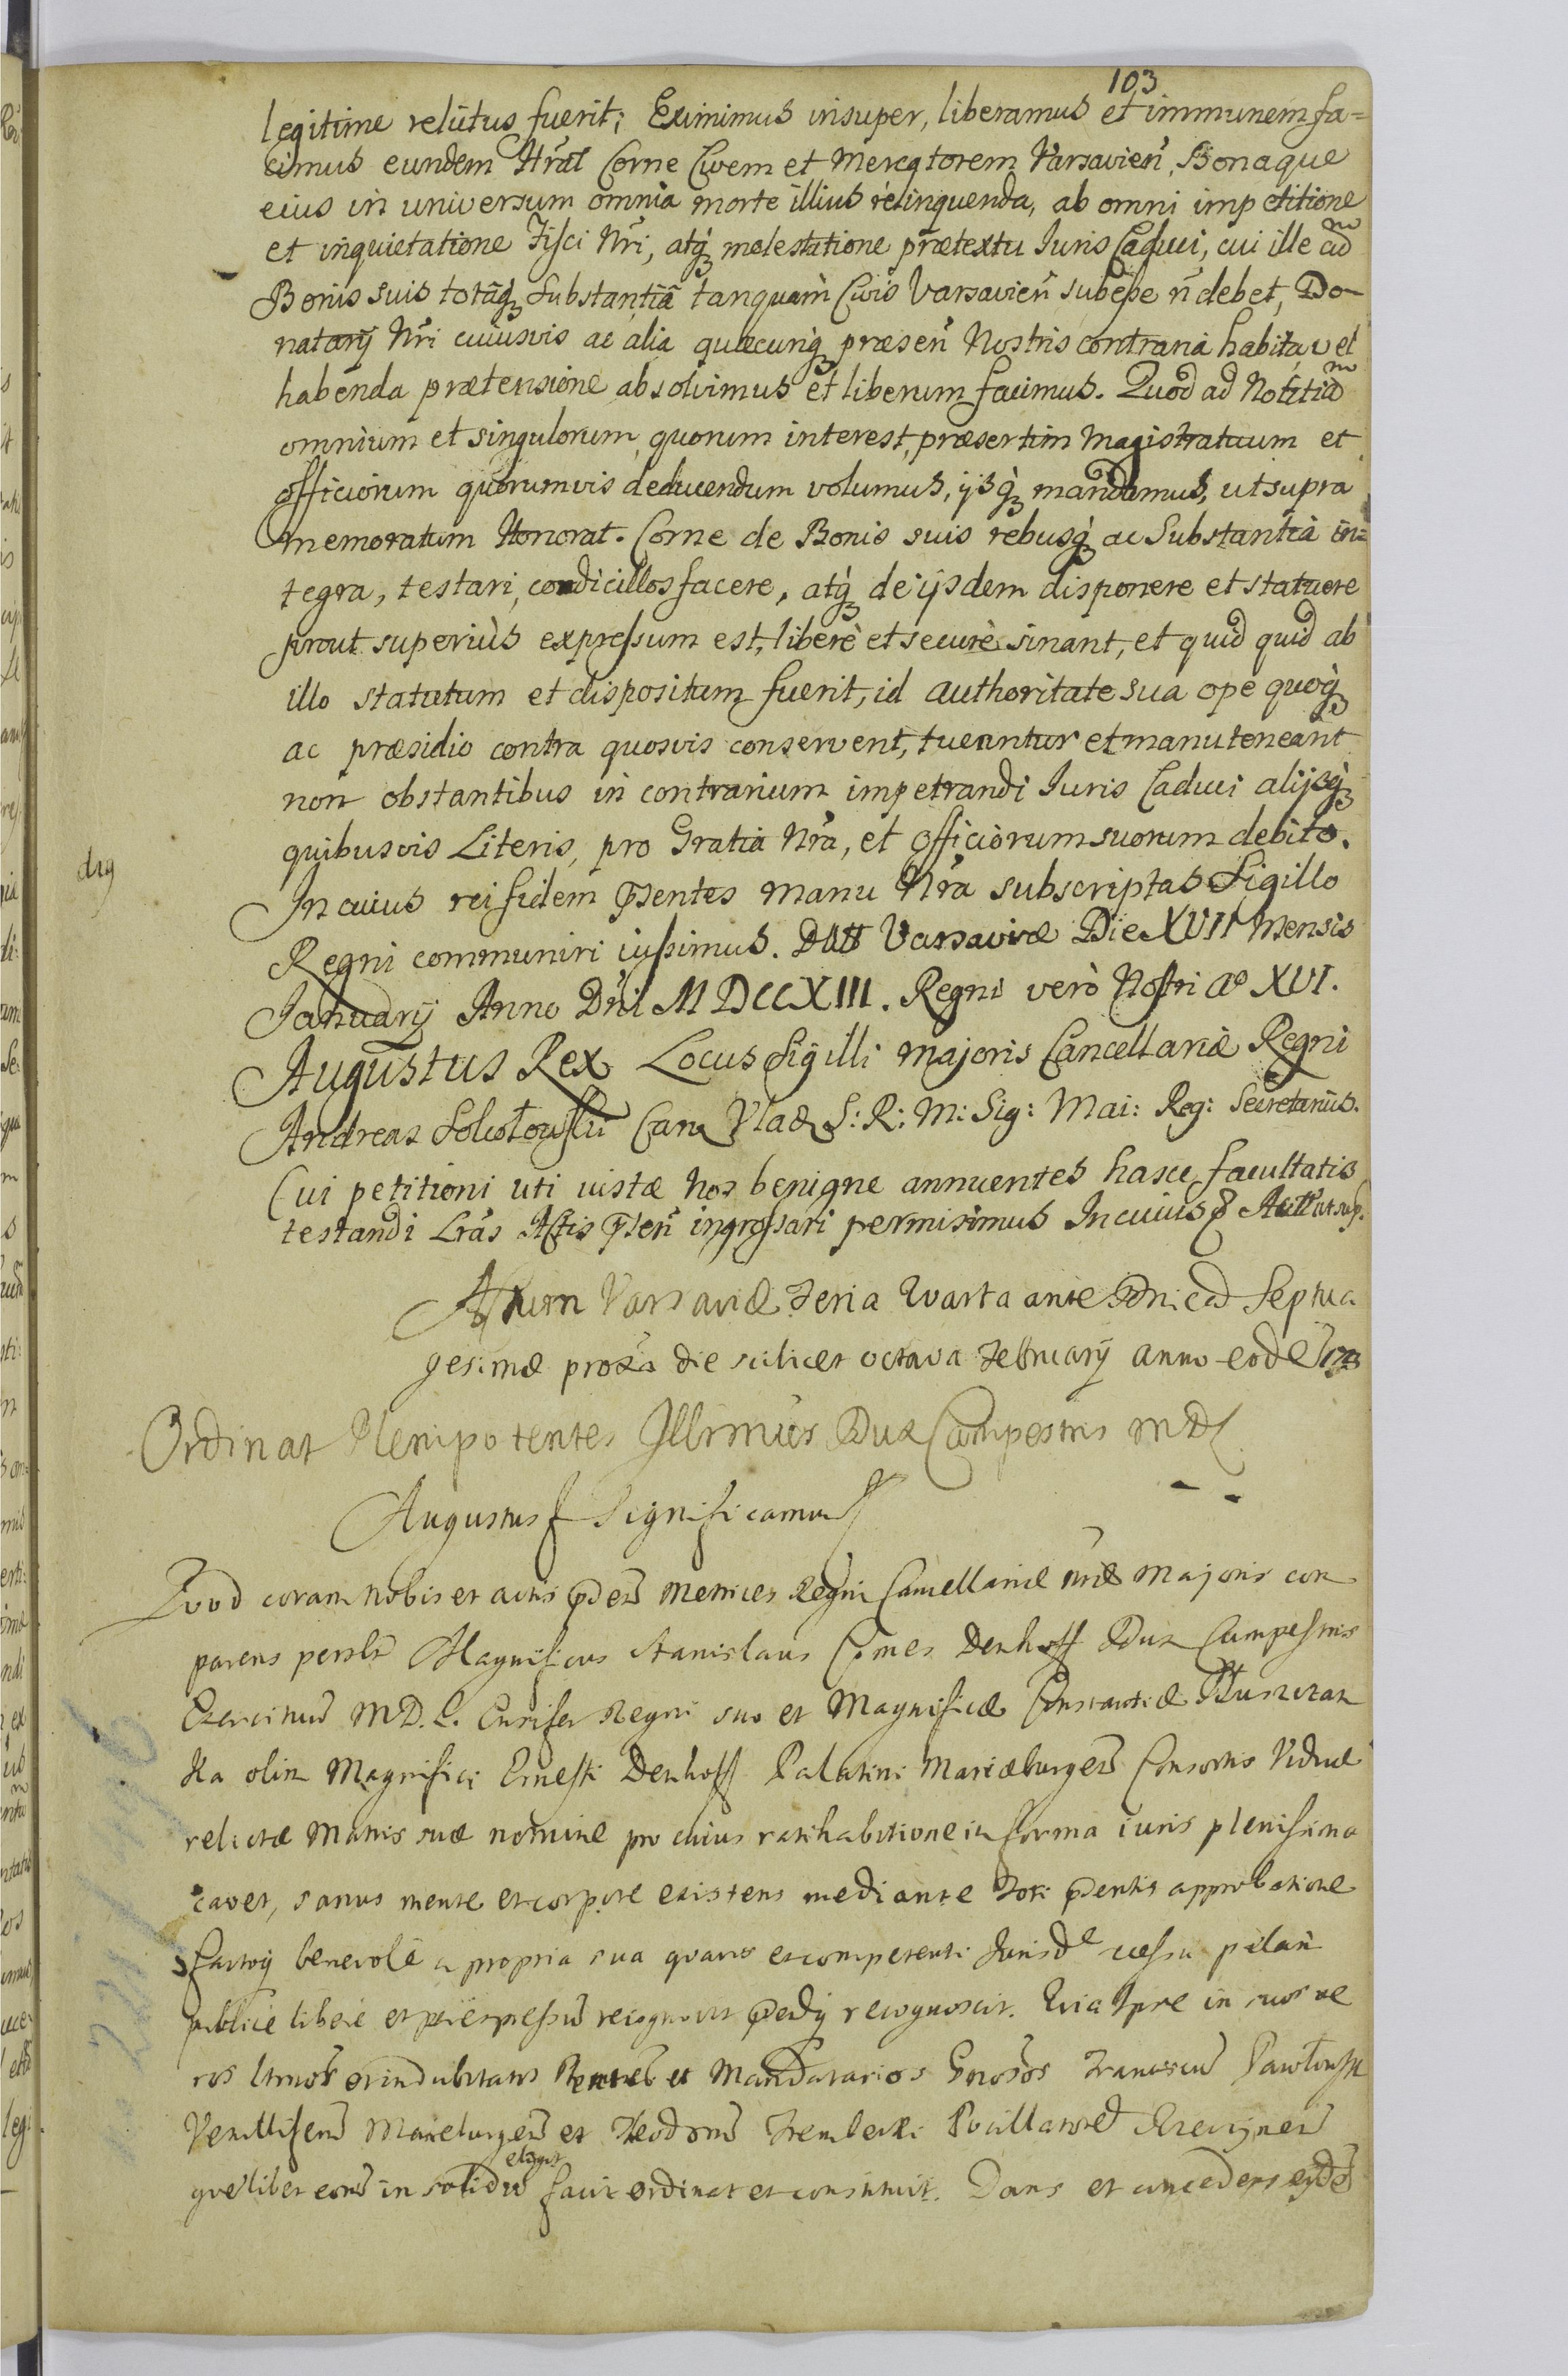 103
legitime relictus fuerit; Eximimus insuper, liberamus et immunem fa=
cimus eundem Hrat Corne Civem et Mercatorem Varsavień, Bonaque
eius in universum omnia morte illius relinquenda, ab omni impetitione
et inquietatione Fisci Nri, atq́ molestatione prætextu Iuris Caduci, cui ille cũ
Bonis suis totaq́ Substantiã tanquam Civis Varsavień subesse ń debet, Do-
natarij Nri cuiusvis ac alia quæcunq́ præseń Nostris contraria habita vel
habenda prætensione absolvimus et liberum facimus. Quod ad Notitiam
omnium et singulorum quorum interest, præsertim Magistratuum et
officiorum quorumvis deducendum volumus, ijsq́ mandamus, ut supra
memoratum Honorat. Corne de Bonis suis rebusq́ ac Substantia in=
tegra, testari, condicillos facere, atq́ de ijsdem disponere et statuere
prout superiùs expressum est, liberè et securè sinant, et quid quid ab
illo statutum et dispositum fuerit, id authoritate sua ope quoq́
ac præsidio contra quosvis conservent, tueantur et manuteneant
non obstantibus in contrarium impetrandi Iuris Caduci alijsq́
quibusvis Literis, pro Gratia Nra, et officiorum suorum debito.
drg
In cuius rei fidem p̃sentes manu Nra subscriptas Sigillo
Regni communiri iussimus. Datt Varsaviæ Die XVII Mensis
January Anno Dni M DCCXIII. Regni verò Nostri Ao XVI.
Augustus Rex Locus Sigilli majoris Cancellariæ Regni
Andreas Can S: R: M: Sig: Mai: Reg: Secretarius.
Cui petitioni uti iustæ Nos benigne annuentes hasce facultatis
testandi Lrãs Actis p̃seń ingrossari permisimus In cuius Act ut sup.
Actum Varsaviæ Feria Quarta ante Dnicã Septua
gesimæ proxã die scilicet octava February anno eodẽ 1713
Ordinat Plenipotentes Illrimus Dux Campestris MDL
Augustus Significamus
Quod coram Nobis et actis p̃deń Metrices Regni Cancellariæ nræ Majoris com
parens persłr Magnificus Stanislaus Comes Denhoff Dux Campestris
Exercituũ M.D.L. Ensifer Regni suo et Magnificæ Constantiæ
ka olim Magnifici Ernesti Denhoff Palatini Mariæburgeń Consortis Viduæ
relictæ Matris suæ nomine pro cuius ratihabitione in forma iuris plenissima
cavet, sanus mente et corpore existens mediante Fori p̃sentis approbatione
benevolè a propria sua quavis et competenti Jurisde recessu
publice libere et per expressũ recognovit p̃sentibusq recognoscit. Quia Ipse in suos ve
ros ltimos et indubitatos et Mandatarios Gnosos Franciscũ
Vexilliferũ Marieburgeń et Theodorũ Trembecki Pocillatorẽ
quẽlibet eorũ in solidũ eligit facit ordinat et constituit. Dans et concedens eisdẽ